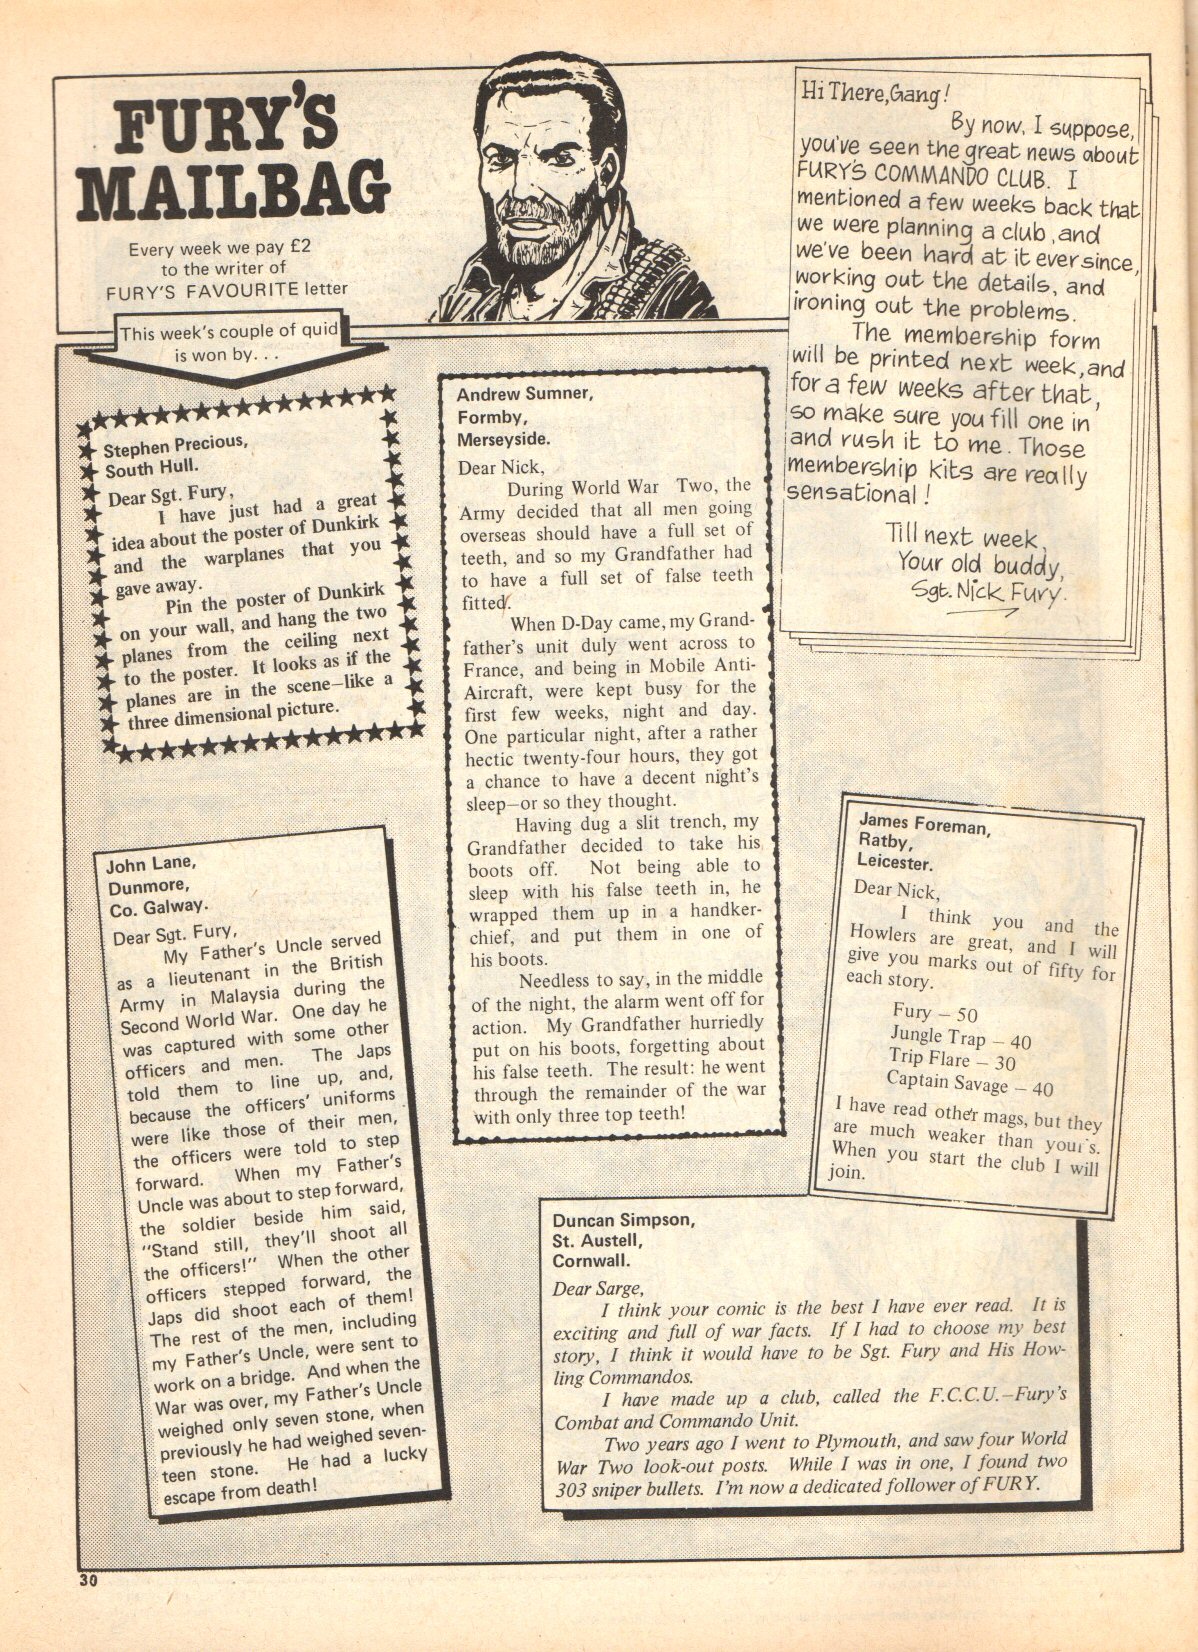 FURY'S
MAILBAG
Every week we pay £2
to the writer of
FURY'S FAVOURITE letter
This week's couple of quid
is won by. . .
Stephen Precious,
South Hull.
Dear Sgt. Fury,
I have just had a great
idea about the poster of Dunkirk
and the warplanes that you
gave away.
Pin the poster of Dunkirk
on your wall, and hang the two
planes from the ceiling next
to the poster. It looks as if the
planes are in the scene—like a
three dimensional picture.
John Lane,
Dunmore,
Co. Galway.
Dear Sgt. Fury,
My Father's Uncle served
as a lieutenant in the British
Army in Malaysia during the
Second World War. One day he
was captured with some other
officers and men. The Japs
told them to line up, and,
because the officers' uniforms
were like those of their men,
the officers were told to step
forward. When my Father's
Uncle was about to step forward,
the soldier beside him said,
"Stand still, they'll shoot all
the officers!" When the other
officers stepped forward, the
Japs did shoot each of them!
The rest of the men, including
my Father's Uncle, were sent to
work on a bridge. And when the
War was over, my Father's Uncle
weighed only seven stone, when
previously he had weighed seven-
teen stone. He had a lucky
escape from death!
Andrew Sumner,
Formby,
Merseyside.
Dear Nick,
During World War Two, the
Army decided that all men going
overseas should have a full set of
teeth, and so my Grandfather had
to have a full set of false teeth
fitted.
When D-Day came, my Grand-
father's unit duly went across to
France, and being in Mobile Anti-
Aircraft, were kept busy for the
first few weeks, night and day.
One particular night, after a rather
hectic twenty-four hours, they got
a chance to have a decent night's
sleep—or so they thought.
Having dug a slit trench, my
Grandfather decided to take his
boots off. Not being able to
sleep with his false teeth in, he
wrapped them up in a handker-
chief, and put them in one of
his boots.
Needless to say, in the middle
of the night, the alarm went off for
action. My Grandfather hurriedly
put on his boots, forgetting about
his false teeth. The result: he went
through the remainder of the war
with only three top teeth!
Hi There, Gang!
By now, I suppose,
you've seen the great news about
FURY'S COMMANDO CLUB. I
mentioned a few weeks back that
we were planning a club, and
we've been hard at it ever since,
working out the details, and
ironing out the problems.
The membership form
will be printed next week, and
for a few weeks after that,
so make sure you fill one in
and rush it to me. Those
membership kits are really
sensational!
Till next week,
Your old buddy,
Sgt. Nick Fury.
James Foreman,
Ratby,
Leicester.
Dear Nick,
I think you and the
Howlers are great, and I will
give you marks out of fifty for
each story.
Fury — 50
Jungle Trap — 40
Trip Flare — 30
Captain Savage — 40
I have read other mags, but they
are much weaker than yours.
When you start the club I will
join.
Duncan Simpson,
St. Austell,
Cornwall.
Dear Sarge,
I think your comic is the best I have ever read. It is
exciting and full of war facts. If I had to choose my best
story, I think it would have to be Sgt. Fury and His How-
ling Commandos.
I have made up a club, called the F.C.C.U.—Fury's
Combat and Commando Unit.
Two years ago I went to Plymouth, and saw four World
War Two look-out posts. While I was in one, I found two
303 sniper bullets. I'm now a dedicated follower of FURY.
30